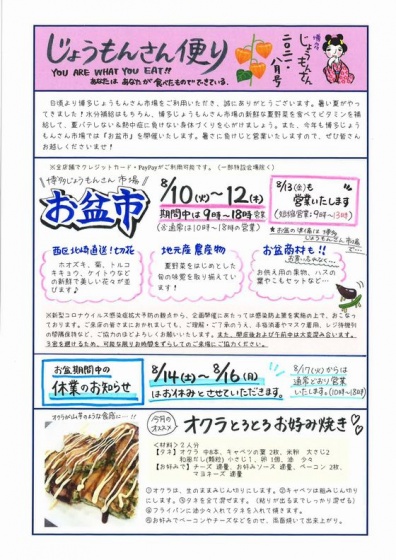 じょうもんさん便り
YOU ARE WHAT YOU EAT!!
あなたは あなたが 食べたものでできている.
博多
じょうもんさん
二〇二一.八月号
日頃より博多じょうもんさん市場をご利用いただき、誠にありがとうございます。暑い夏がやっ
てきました！水分補給はもちろん、博多じょうもんさん市場の新鮮な夏野菜を食べてビタミンを補
給して、夏バテしない＆熱中症に負けない身体づくりを心がけましょう。また、今年も博多じょうもん
さん市場では『お盆市』を開催いたします。暑さに負けじと営業いたしますので、ぜひ皆さん
お越しくださいませ！
※全店舗でクレジットカード・PayPayがご利用可能です。（一部特設会場除く）
博多じょうもんさん市場
お盆市
8/10(火)～12(木)
期間中は9時～18時営業
(☆通常は10時～18時営業)
8/13(金)も
営業いたします
(短縮営業:9時～13時)
★お盆の準備は博多
じょうもんさん市場で…
西区北崎直送!切花
ホオズキ、菊、トルコ
キキョウ、ケイトウなど
の新鮮で美しい花々が並
びます♪
地元産農産物
夏野菜をはじめとした
旬の味覚を取り揃えて
います！
お盆商材も!!
お供え用の果物、ハスの
葉やこもセットなど…
※新型コロナウイルス感染症拡大予防の観点から、企画開催にあたっては感染防止策を実施の上で、おこな
っております。ご来店の皆さまにおかれましても、ご理解・ご了承のうえ、手指消毒やマスク着用、レジ待機列
の間隔保持など、ご協力のほどよろしくお願いいたします。また、開店後および午前中は大変混み合います。
3密を避けるため、可能な限りお時間をずらしてのご来場にご協力ください。
お盆期間中の
休業のお知らせ
8/14(土)～8/16(月)
はお休みとさせていただきます。
8/17(火)からは
通常どおり営業
いたします。(10時～18時)
オクラが山芋のような食感に…!!
今月の
オススメ
オクラとろとろお好み焼き♡
＜材料＞2人分
【タネ】オクラ 中8本、キャベツの葉 2枚、米粉 大さじ2
和風だし(顆粒) 小さじ1、卵 1個、油 少々
【お好みで】チーズ 適量、お好みソース 適量、ベーコン 2枚、
マヨネーズ 適量
①オクラは、生のままみじん切りにします。②キャベツは粗みじん切り
にします。③タネを全て混ぜます。（粘りが出るまでしっかり混ぜる）
④フライパンに油少々入れてタネを入れて焼きます。
⑤お好みでベーコンやチーズなどをのせ、両面焼いて出来上がり。